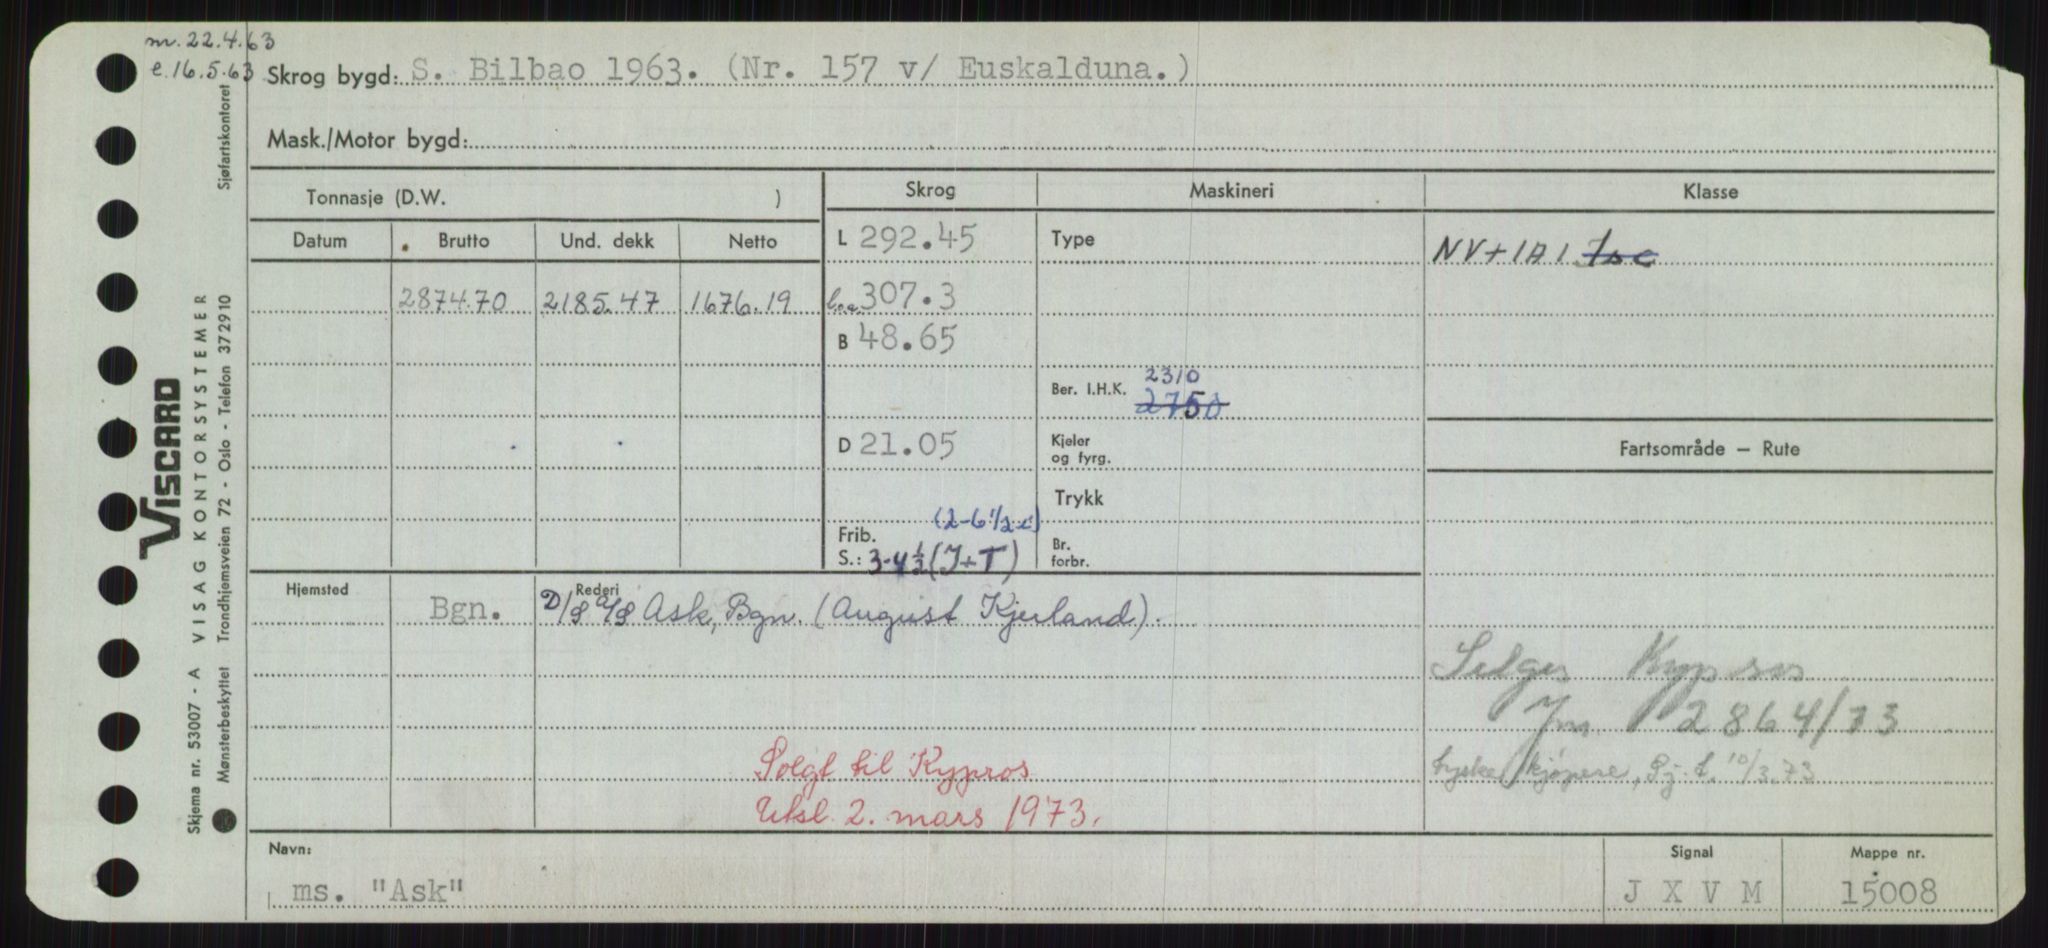 m. 22.4.63
e. 16.5.63
Skrog bygd: S. Bilbao 1963. (Nr. 157 v/ Euskalduna.)
Mask./Motor bygd:
Tonnasje (D.W. )
Skrog
Maskineri
Klasse
Datum
Brutto
Und. dekk
Netto
L 292.45
Type
NV+1A1
2874.70
2185.47
1676.19
loa 307.3
B 48.65
2310
Ber. I.H.K. 2750
D 21.05
Kjeler
og fyrg.
Fartsområde — Rute
Trykk
(2-6 1/2 i)
Frib.
S.: 3-4 1/2 (J+T)
Br.
forbr.
Hjemsted
Rederi
Bgn.
D/S A/S Ask, Bgn. (August Kjerland).
Selges Kypros
Jm 2864/73
kjøpere, Sj. t. 10/3.73
Solgt til Kypros
Uksl. 2. mars 1973.
Navn:
ms. "Ask"
Signal
J X V M
Mappe nr.
15008
VISCARD
Skjema nr. 53007 - A VISAG KONTORSYSTEMER
Mønsterbeskyttet Trondhjemsveien 72 - Oslo - Telefon 372910
Sjøfartskontoret